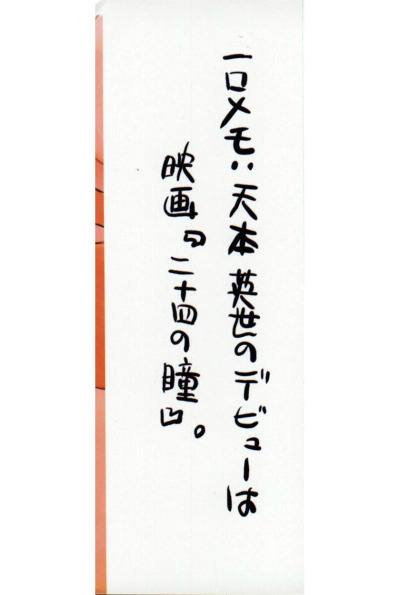 一口メモ:天本英世のデビューは
映画『二十四の瞳』。